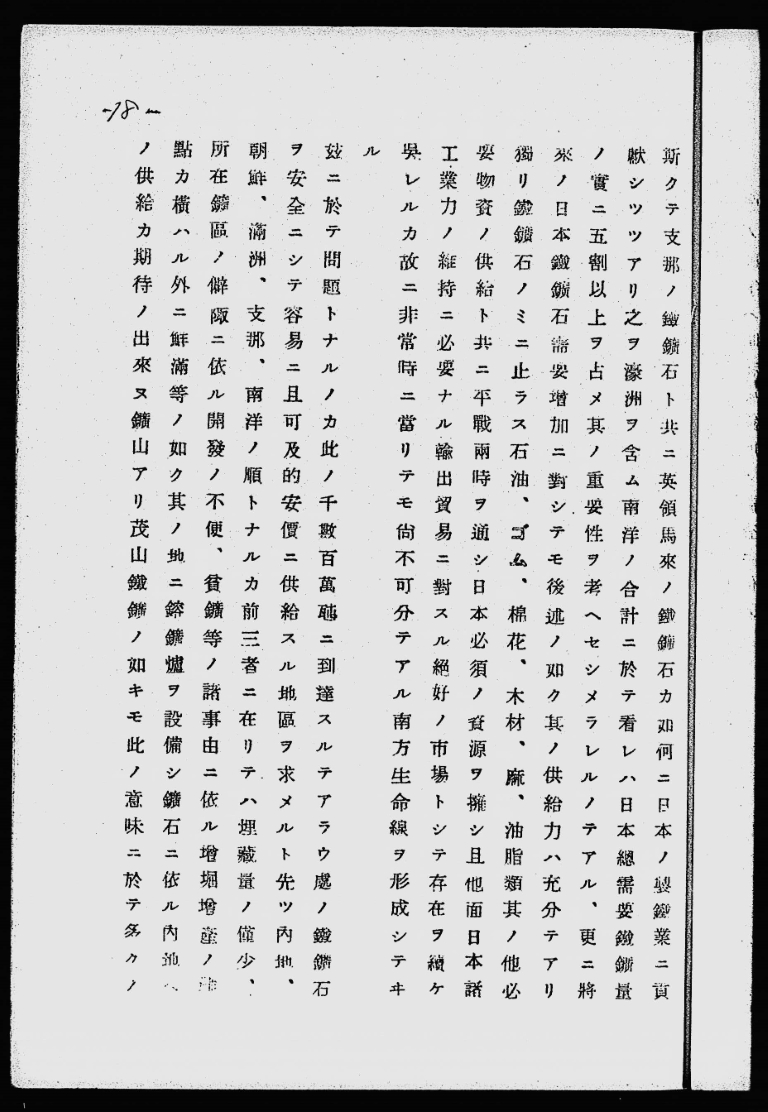 -18-
斯クテ支那ノ鐵鑛石ト共ニ英領馬來ノ鐵鑛石カ如何ニ日本ノ製鐵業ニ貢
獻シツツアリ之ヲ濠洲ヲ含ム南洋ノ合計ニ於テ看レハ日本總需要鐵鑛量
ノ實ニ五割以上ヲ占メ其ノ重要性ヲ考ヘセシメラレルノテアル、更ニ將
來ノ日本鐵鑛石需要增加ニ對シテモ後述ノ如ク其ノ供給力ハ充分テアリ
獨リ鐵鑛石ノミニ止ラス石油、ゴム、棉花、木材、麻、油脂類其ノ他必
要物資ノ供給ト共ニ平戰兩時ヲ通シ日本必須ノ資源ヲ擁シ且他面日本諸
工業力ノ維持ニ必要ナル輸出貿易ニ對スル絕好ノ市場トシテ存在ヲ續ケ
吳レルカ故ニ非常時ニ當リテモ尙不可分テアル南方生命線ヲ形成シテヰ
ル
玆ニ於テ問題トナルノカ此ノ千數百萬噸ニ到達スルテアラウ處ノ鐵鑛石
ヲ安全ニシテ容易ニ且可及的安價ニ供給スル地區ヲ求メルト先ツ內地、
朝鮮、滿洲、支那、南洋ノ順トナルカ前三者ニ在リテハ埋藏量ノ僅少、
所在鑛區ノ僻陬ニ依ル開發ノ不便、貧鑛等ノ諸事由ニ依ル增堀增產ノ
點カ橫ハル外ニ鮮滿等ノ如ク其ノ地ニ鎔鑛爐ヲ設備シ鑛石ニ依ル內地ヘ
ノ供給カ期待ノ出來ヌ鑛山アリ茂山鐵鑛ノ如キモ此ノ意味ニ於テ多クノ